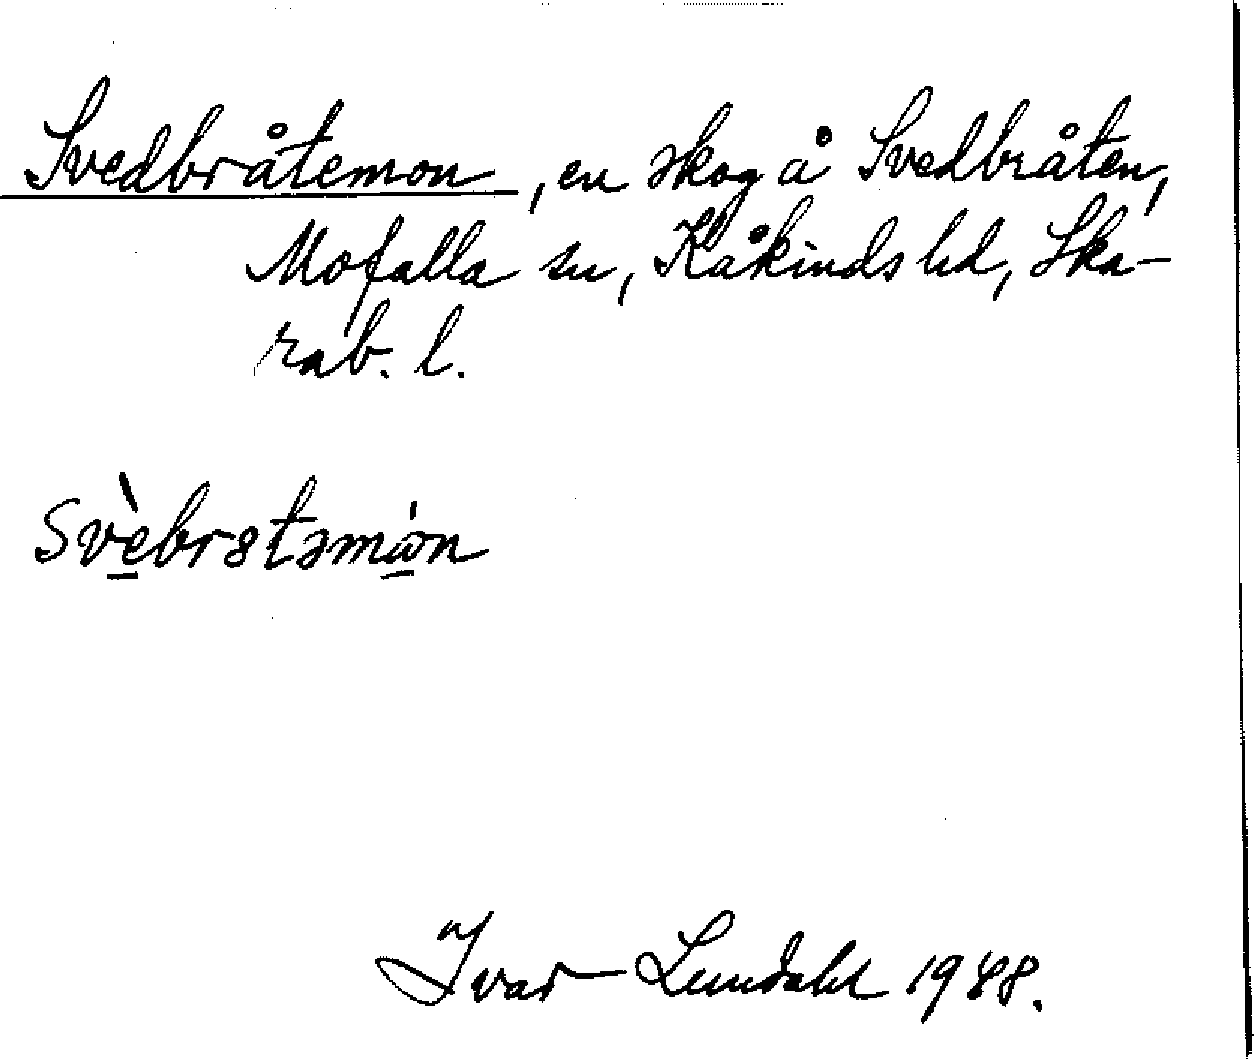 Svedbråtemon, en skog å Svedbråten,
Mofalla sn, Kåkinds hd, Ska-
rab. l.
Svèbr8təmón
Ivar Lundahl 1948.